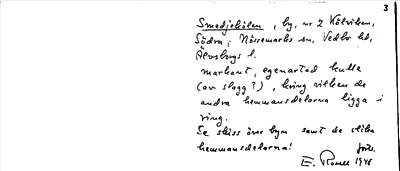 3
Smedjekölen, by, nr 2 Kölviken,
Södra, Nössemarks sn, Vedbo hd,
Älvsborgs l.
markant, egenartad kulle
(av slagg?), kring vilken de
andra hemmansdelarna ligga i
ring.
Se skiss över byn samt de olika
hemmansdelarna!
E. 1946